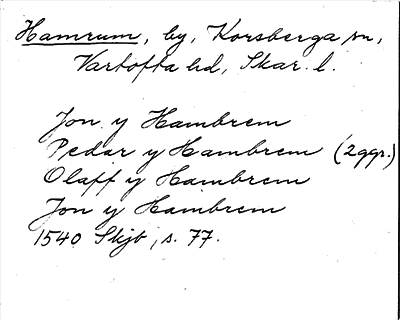 Hamrum, by, Korsberga sn,
Vartofta hd, Skar. l.
Jon y Hambrem
Pedar y Hambrem (2 ggr.)
Olaff y Hambrem
Jon y Hambrem
1540 Skjb, s. 77.